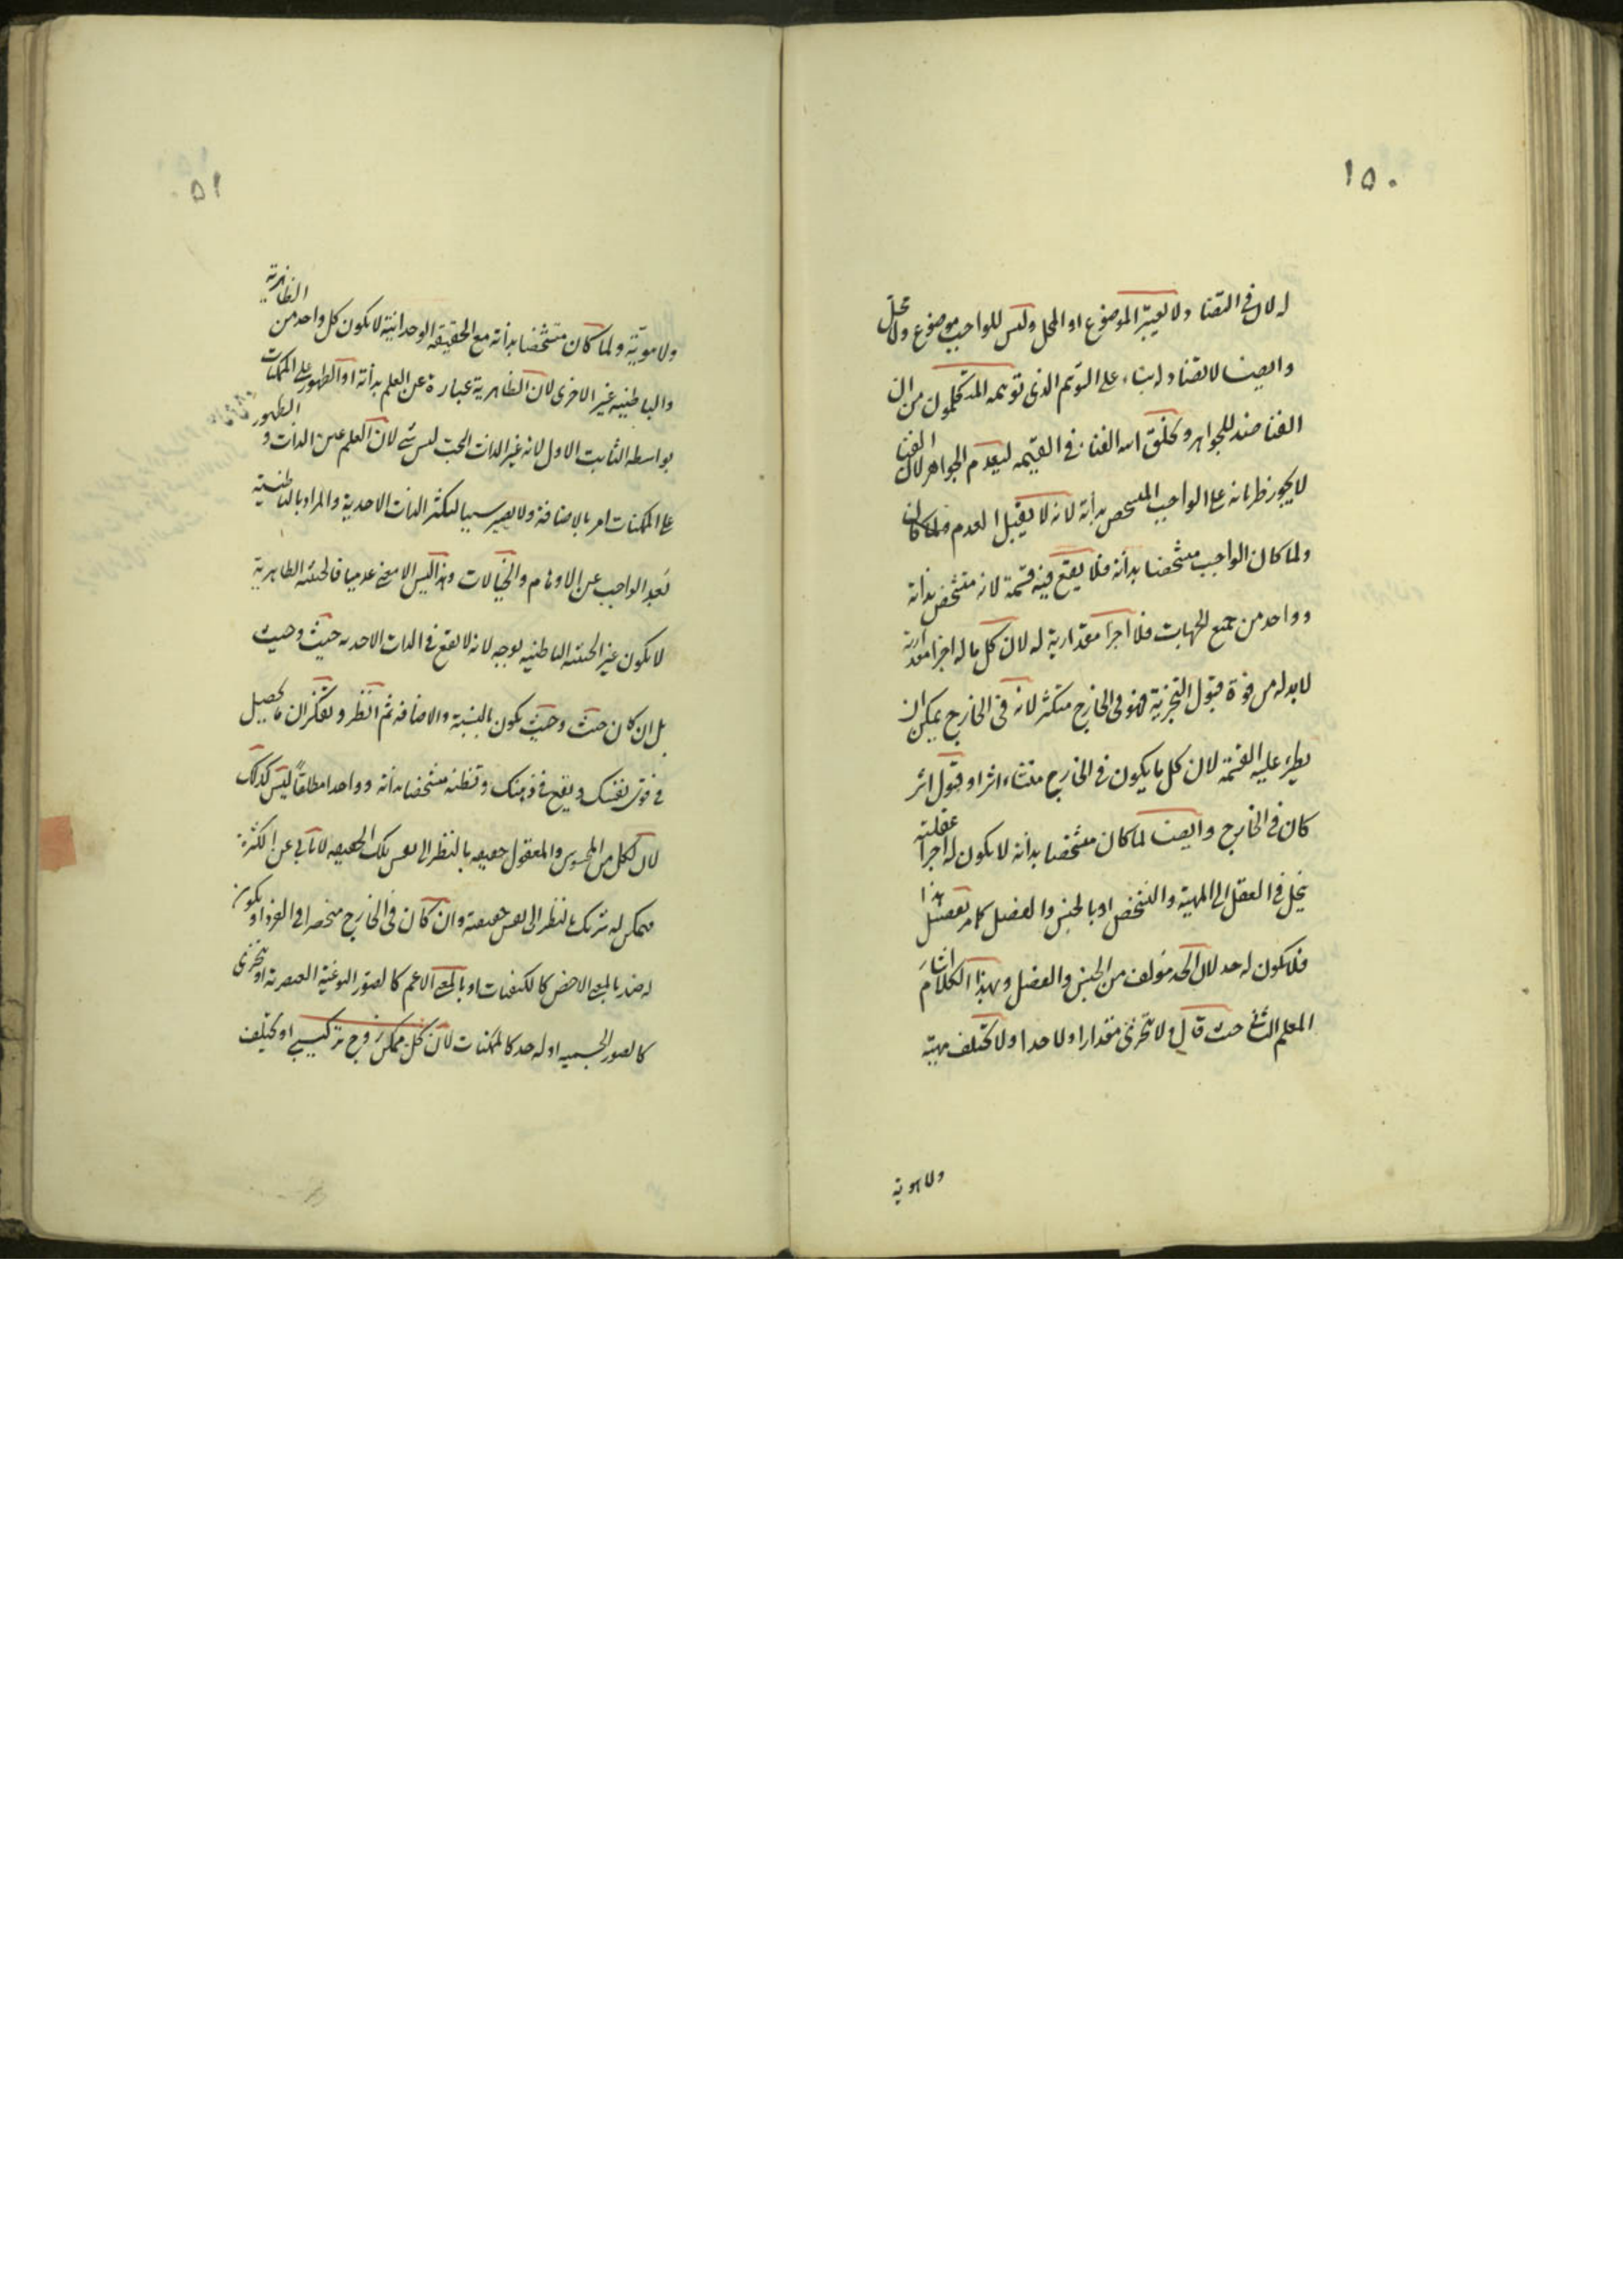 ١٥٠
له لان فى التضاد لا يعتبر الموضوع او المحل وليس للواجب موضوع ولا محل
وايضا لا تضاد له بناء على التوهم الذى توهمه المتكلمون من ان
الفنا ضد للجواهر ويخلق الله الفنا فى القيمه ليعدم الجواهر لان الفنا
لا يجوز طريانه على الواجب المتشخص بذاته لانه لا يقبل العدم
ولما كان الواجب متشخصا بذاته فلا يقع فيه قسمة لانه متشخص بذاته
وواحد من جميع الجهات فلا اجزا مقدارية له لان كل ما له اجزا مقدارية
لا بد له من قوة قبول التجزية فهو فى الخارج متكثر لانه فى الخارج يمكن ان
يطرء عليه القسمة لان كل ما يكون فى الخارج منشاء اثر او قبول اثر
كان فى الخارج وايضا لما كان متشخصا بذاته لا يكون له اجزا عقلية
ينحل فى العقل الى المهية والتشخص او بالجنس والفصل كما مر تفصيل هذا
فلا يكون له حد لان الحد مؤلف من الجنس والفصل وبهذا الكلام اشار
المعلم الثانى حيث قال ولا يتجزى مقدارا ولا حدا ولا تختلف مهية
ولا هوية
١٥١
ولا هوية ولما كان متشخصا بذاته مع الحقيقة الوحدانية لا يكون كل واحد من الظاهرية
والباطنية غير الاخرى لان الظاهرية عبارة عن العلم بذاته او الظهور على الممكنات
بواسطه الثابت الاول لانه غير الذات البحت ليس شى لان العلم عين الذات و الظهور
على الممكنات امر بالاضافة ولا يصير سببا لتكثر الذات الاحدية والمراد بالباطنية
بعد الواجب عن الاوهام والخيالات وهذا ليس الا معنى عدميا فالحيثية الظاهرية
لا يكون غير الحيثية الباطنية بوجه لانه لا يقع فى الذات الاحديه حيث وحيث
بل ان كان حيث وحيث يكون بالنسبة والاضافه ثم انظر وتفكر ان ما يحصل
فى قوى نفسك ويقع فى ذهنك وتظنه متشخصا بذاته وواحدا مطلقا ليس كذلك
لان لكل من المحسوس والمعقول حقيقه بالنظر الى نفس تلك الحقيقه لا تأبى عن الكثرة
فيمكن له شريك بالنظر الى نفس حقيقته وان كان فى الخارج منحصرا فى الفرد او يكون
له ضد بالمعنى الاخص كالكيفيات او بالمعنى الاعم كالصور النوعية العنصرية او يتجزى
كالصور الجسميه او له حد كالممكنات لان كل ممكن زوج تركيبى او يختلف